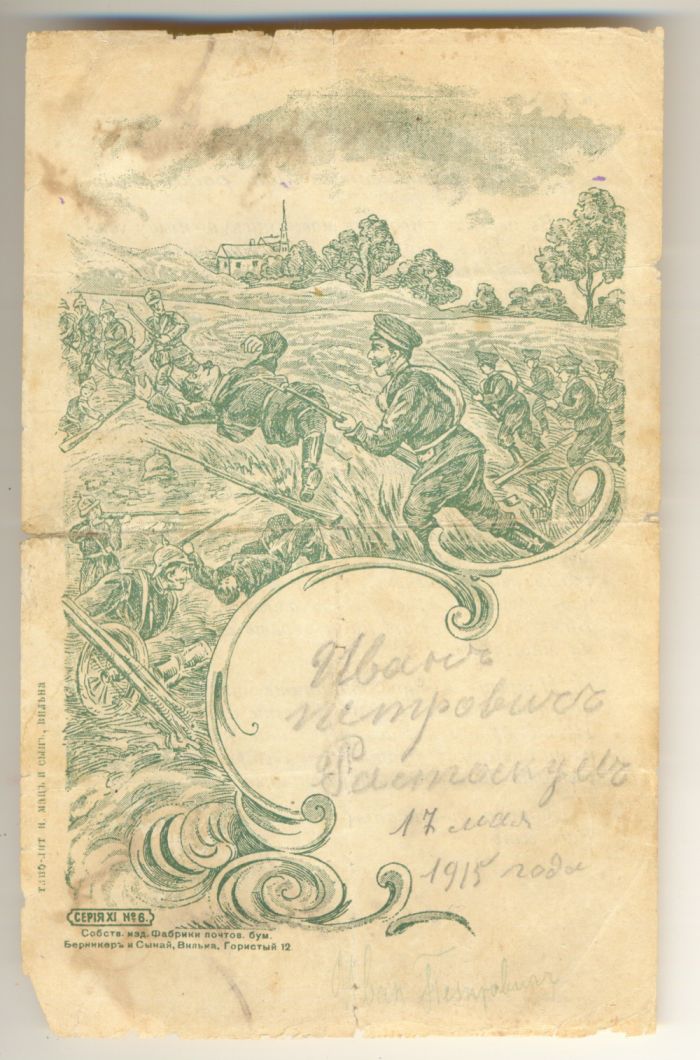 Иванъ
петровичъ
17 мая
1915 года
ТИПО-ЛИТ И. МАЦЪ И СЫНЪ, ВИЛЬНА
СЕРІЯ XI №6.
Собств. изд. Фабрики почтов. бум.
Берникеръ и Сынай, Вильна, Гористый 12
Иван Петрович